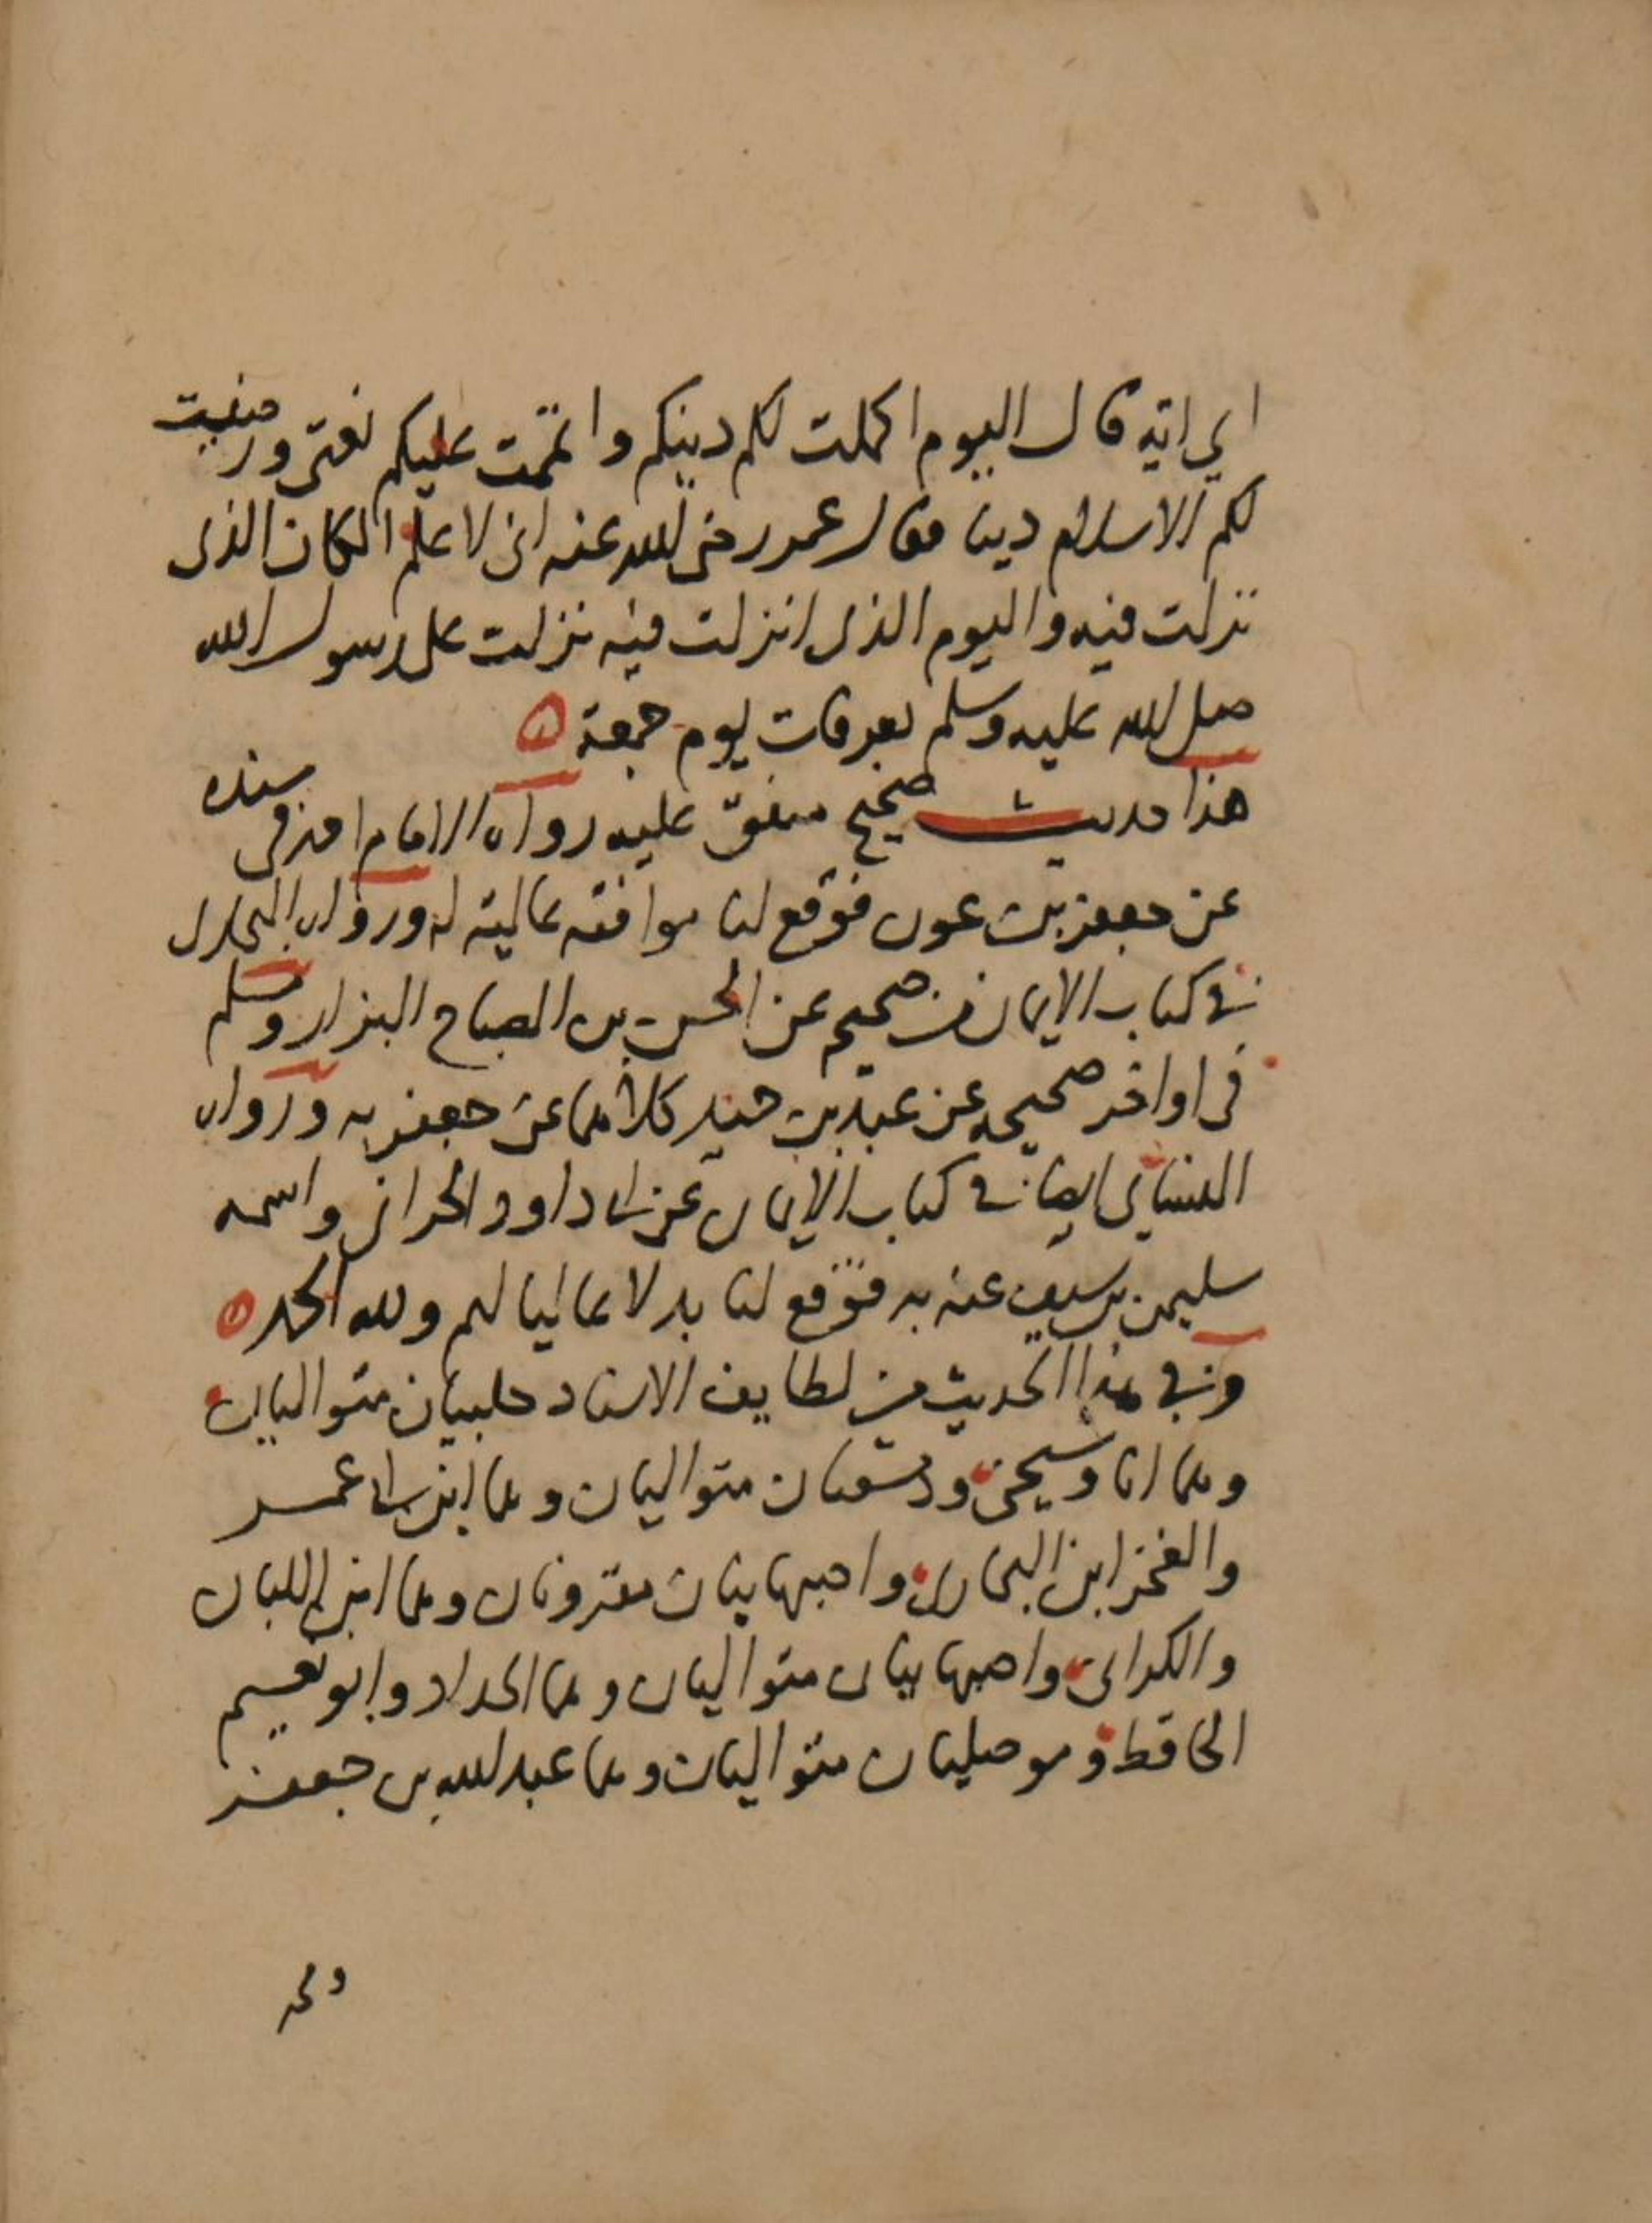 اي اية قال اليوم اكملت لكم دينكم واتممت عليكم نعمتي ورضيت
لكم الاسلام دينا فقال عمر رضي الله عنه اني لاعلم المكان الذي
نزلت فيه واليوم الذي انزلت فيه نزلت على رسول الله
صلى الله عليه وسلم بعرفات يوم جمعة
هذا حديث صحيح متفق عليه رواه الامام احمد في مسنده
عن جعفر بن عون فوقع لنا موافقة عالية له ورواه البخاري
في كتاب الايمان من صحيحه عن الحسن بن الصباح البزار ومسلم
في اواخر صحيحه عن عبد بن حميد كلاهما عن جعفر به ورواه
النسائي ايضا في كتاب الايمان عن ابي داود الحراني واسمه
سليمن بن سيف عنه به فوقع لنا بدلا عاليا لهم ولله الحمد
وفي هذا الحديث من لطايف الاسناد حلبيان متواليان
وهما انا وشيخي ودمشقيان متواليان وهما ابن ابي عمر
والفخر ابن البخاري واصبهانيان مقرونان وهما ابن اللبان
والكراني واصبهانيان متواليان وهما الحداد وابو نعيم
الحافظ وموصليان متواليان وهما عبد الله بن جعفر